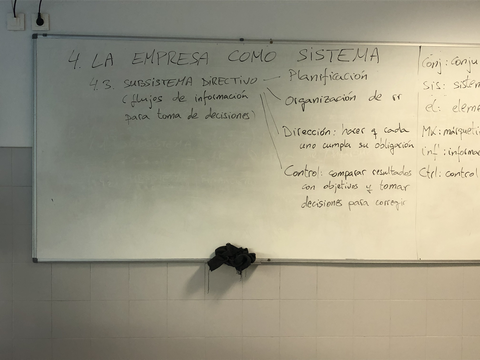 4. LA EMPRESA COMO SISTEMA
4.3. SUBSISTEMA DIRECTIVO
(flujos de información
para toma de decisiones)
Planificación
Organización de rr
Dirección: hacer q cada
uno cumpla su obligación
Control: comparar resultados
con objetivos y tomar
decisiones para corregir
Conj: conju
Sis: sistem
el: eleme
Mk: márqueti
inf: informac
Ctrl: control